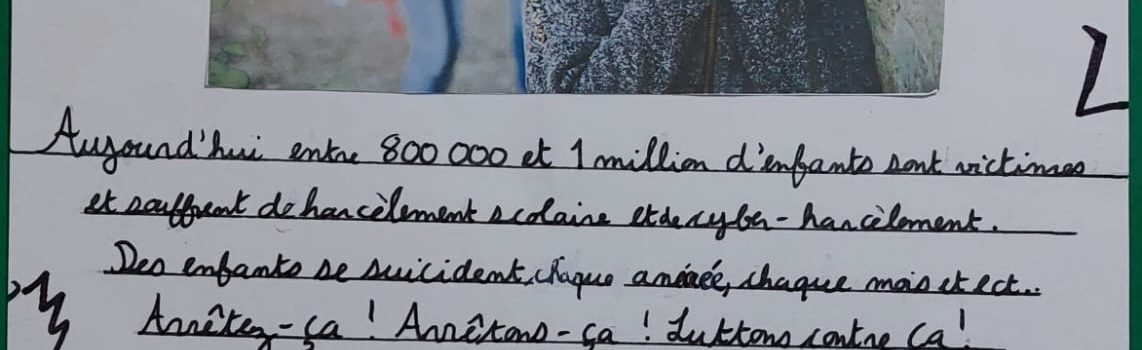 Aujourd'hui entre 800 000 et 1 million d'enfants sont victimes
et souffrent de harcèlement scolaire et de cyber-harcèlement.
Des enfants se suicident, chaque année, chaque mois et ect..
Arrêtez-ça ! Arrêtons-ça ! Luttons contre ça !